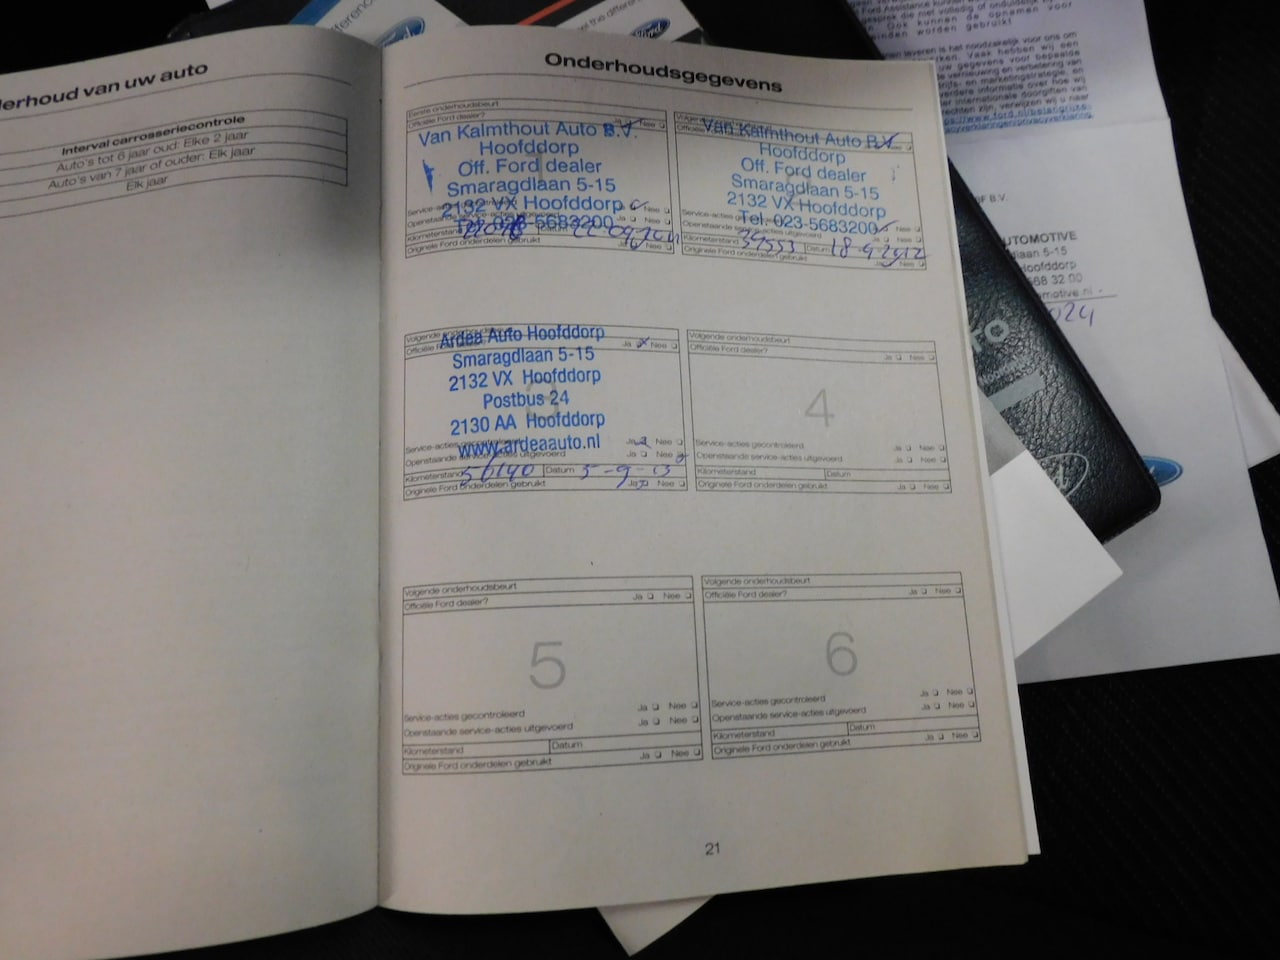 derhoud van uw auto
Interval carrosseriecontrole
Auto's tot 6 jaar oud: Elke 2 jaar
Auto's van 7 jaar of ouder: Elk jaar
Elk jaar
Onderhoudsgegevens
Eerste onderhoudsbeurt
Officiële Ford dealer? Nee
Van Kalmthout Auto B.V.
Hoofddorp
Off. Ford dealer
Smaragdlaan 5-15
2132 VX Hoofddorp
Tel. 023-5683200
Originele Ford onderdelen gebruikt Ja Nee
Van Kalmthout Auto B.V.
Hoofddorp
Off. Ford dealer
Smaragdlaan 5-15
2132 VX Hoofddorp
Tel. 023-5683200
Kilometerstand 37553 Datum 18-4-2012
Originele Ford onderdelen gebruikt Ja Nee
Volgende onderhoudsbeurt
Ja Nee
Ardea Auto Hoofddorp
Smaragdlaan 5-15
2132 VX Hoofddorp
Postbus 24
2130 AA Hoofddorp
www.ardeaauto.nl
3
Service-acties gecontroleerd Ja Nee
Openstaande service-acties uitgevoerd Ja Nee
Kilometerstand 56140 Datum 5-9-13
Originele Ford onderdelen gebruikt Ja Nee
Volgende onderhoudsbeurt
Officiële Ford dealer? Ja Nee
4
Service-acties gecontroleerd Ja Nee
Openstaande service-acties uitgevoerd Ja Nee
Kilometerstand Datum
Originele Ford onderdelen gebruikt Ja Nee
Volgende onderhoudsbeurt
Officiële Ford dealer? Ja Nee
5
Service-acties gecontroleerd Ja Nee
Openstaande service-acties uitgevoerd Ja Nee
Kilometerstand Datum
Originele Ford onderdelen gebruikt Ja Nee
Volgende onderhoudsbeurt
Officiële Ford dealer? Ja Nee
6
Service-acties gecontroleerd Ja Nee
Openstaande service-acties uitgevoerd Ja Nee
Kilometerstand Datum
Originele Ford onderdelen gebruikt Ja Nee
21
Ford
B.V.
UTOMOTIVE
laan 5-15
Hoofddorp
568 32 00
motive.nl
024